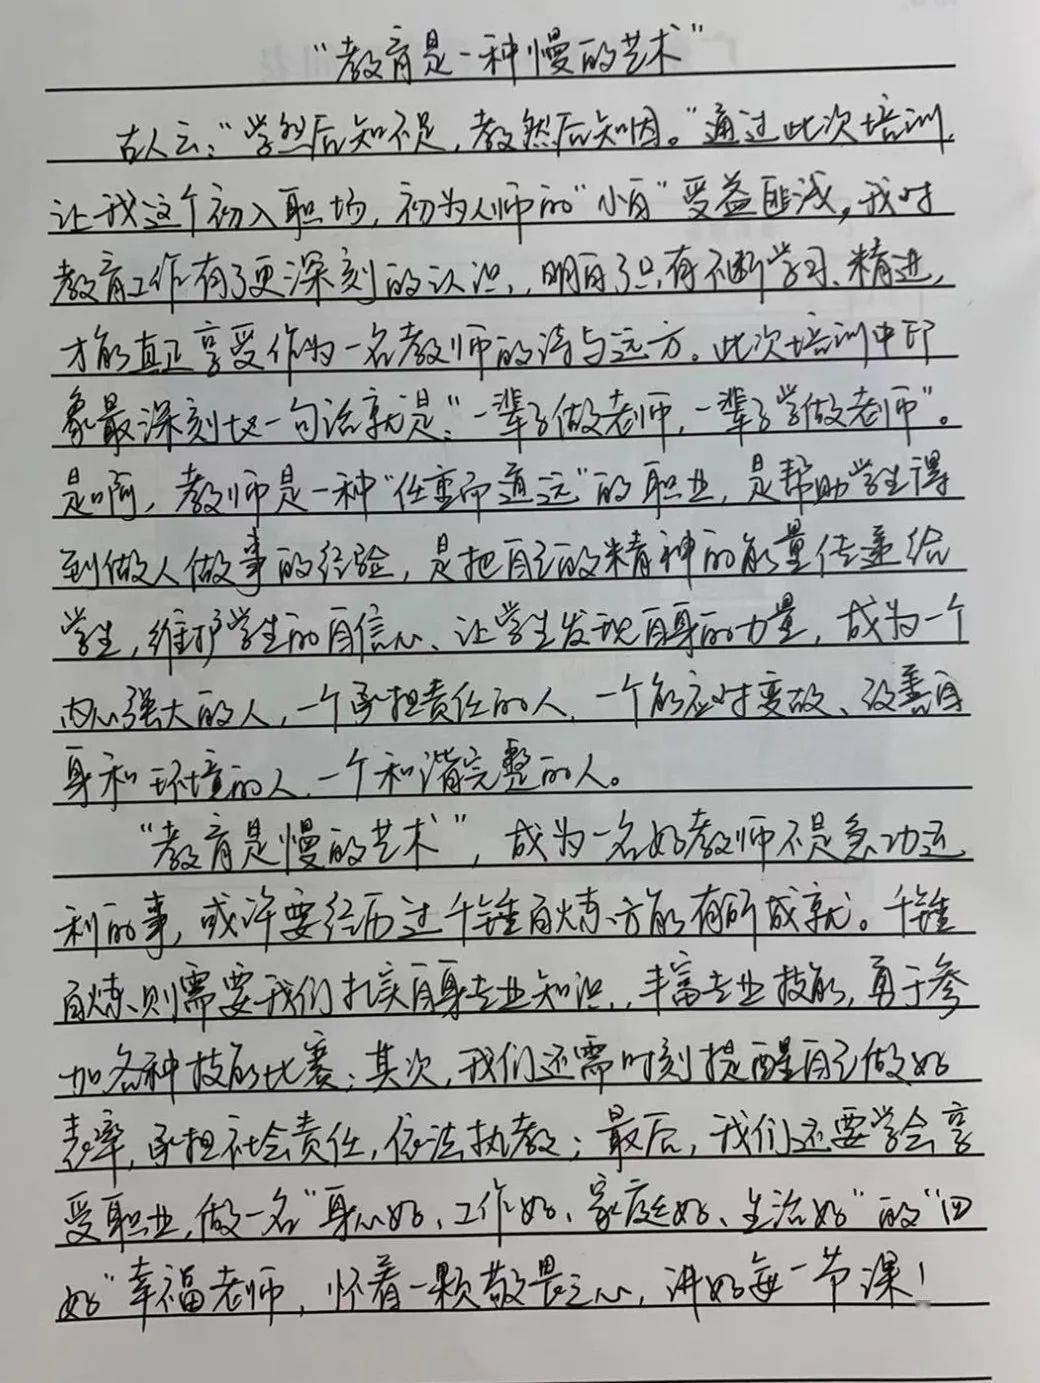 “教育是一种慢的艺术”
古人云：“学然后知不足，教然后知困。”通过此次培训，
让我这个初入职场，初为人师的“小白”受益匪浅，我对
教育工作有了更深刻的认识，明白了只有不断学习、精进，
才能真正享受作为一名教师的诗与远方。此次培训中印
象最深刻地一句话就是：“一辈子做老师，一辈子学做老师”。
是啊，教师是一种“任重而道远”的职业，是帮助学生得
到做人做事的经验，是把自己的精神的能量传递给
学生，维护学生的自信心、让学生发现自身的力量，成为一个
内心强大的人，一个承担责任的人，一个能应对变故、改善自
身和环境的人，一个和谐完整的人。
“教育是慢的艺术”，成为一名好教师不是急功近
利的事，或许要经历过千锤百炼方能有所成就。千锤
百炼则需要我们扎实自身专业知识，丰富专业技能，勇于参
加各种技能比赛；其次，我们还需时刻提醒自己做好
表率，承担社会责任，依法执教；最后，我们还要学会享
受职业，做一名“身心好、工作好、家庭好、生活好”的“四
好”幸福老师，怀着一颗敬畏之心，讲好每一节课！